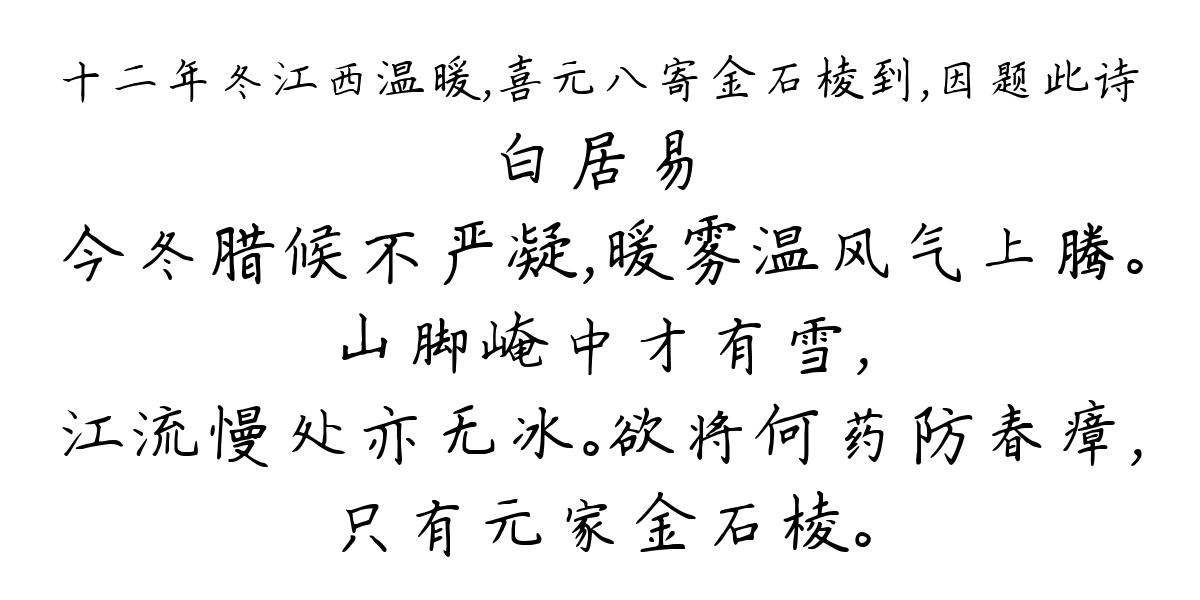 十二年冬江西温暖,喜元八寄金石棱到,因题此诗
白居易
今冬腊候不严凝,暖雾温风气上腾。
山脚崦中才有雪,
江流慢处亦无冰。欲将何药防春瘴,
只有元家金石棱。